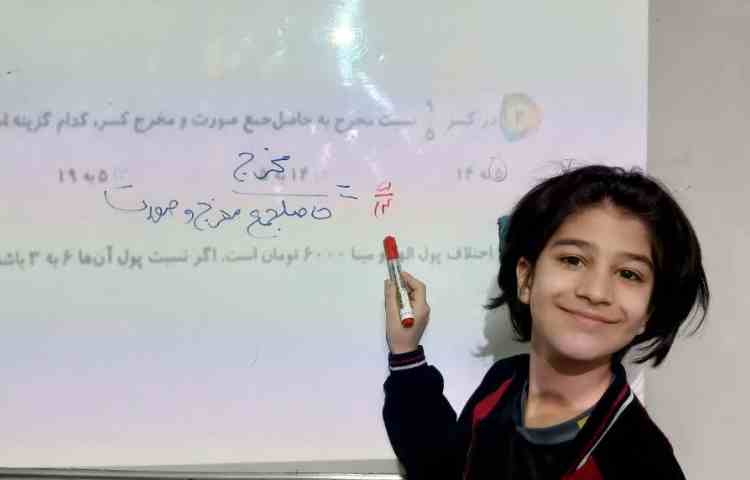 ۲) در کسر ۹/۵ نسبت مخرج به حاصل جمع صورت و مخرج کسر، کدام گزینه
۵ به ۱۴ ۱۴ به ۵ به ۱۹
مخرج
حاصلجمع مخرج و صورت = ۵/۱۴
اختلاف پول الهه و مینا ۶۰۰۰ تومان است. اگر نسبت پول آن‌ها ۶ به ۳ باشد